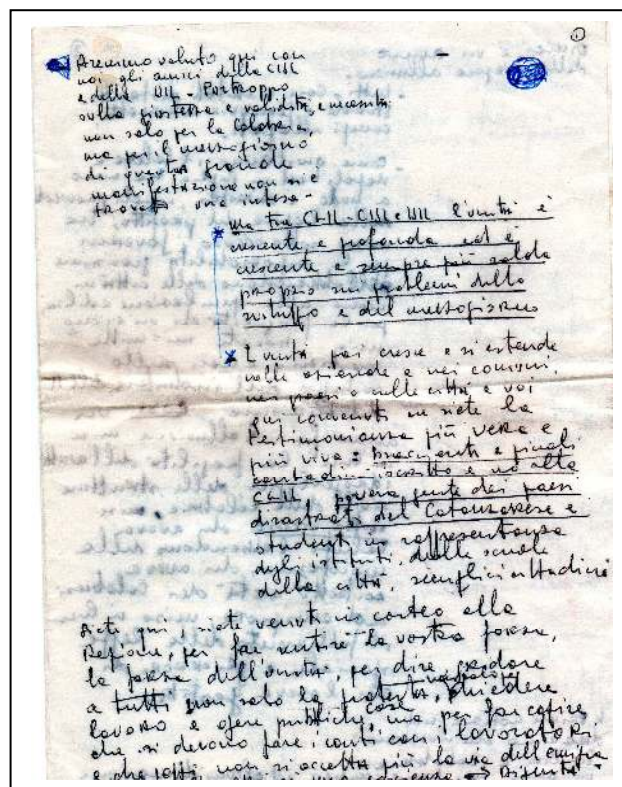 ①
Avremmo voluto qui con
noi gli amici della CISL
e della UIL - Purtroppo
sulla giustezza e validità, e necessità
non solo per la Calabria,
ma per il mezzogiorno
di questa grande
manifestazione non si è
trovata una intesa -
ma tra CGIL-CISL e UIL l'unità è
crescente e profonda ed è
crescente e sempre più salda
proprio sui problemi dello
sviluppo e del mezzogiorno
L'unità poi cresce e si estende
nelle aziende e nei comuni,
nei paesi e nelle città e voi
qui convenuti ne siete la
testimonianza più vera e
più viva: braccianti e piccoli
contadini iscritti e no alla
CGIL, povera gente dei paesi
disastrati del Catanzarese e
studenti in rappresentanza
degli istituti, delle scuole
della città, semplici cittadini
siete qui, siete venuti in corteo alla
Regione, per far sentire la vostra forza,
la forza dell'unità, per dire, gridare
a tutti non solo la protesta, chiedere
lavoro e opere pubbliche, ma per far capire
che si devono fare i conti con i lavoratori
e che oggi non si accetta più la via dell'emigra
una coscienza → Dignità